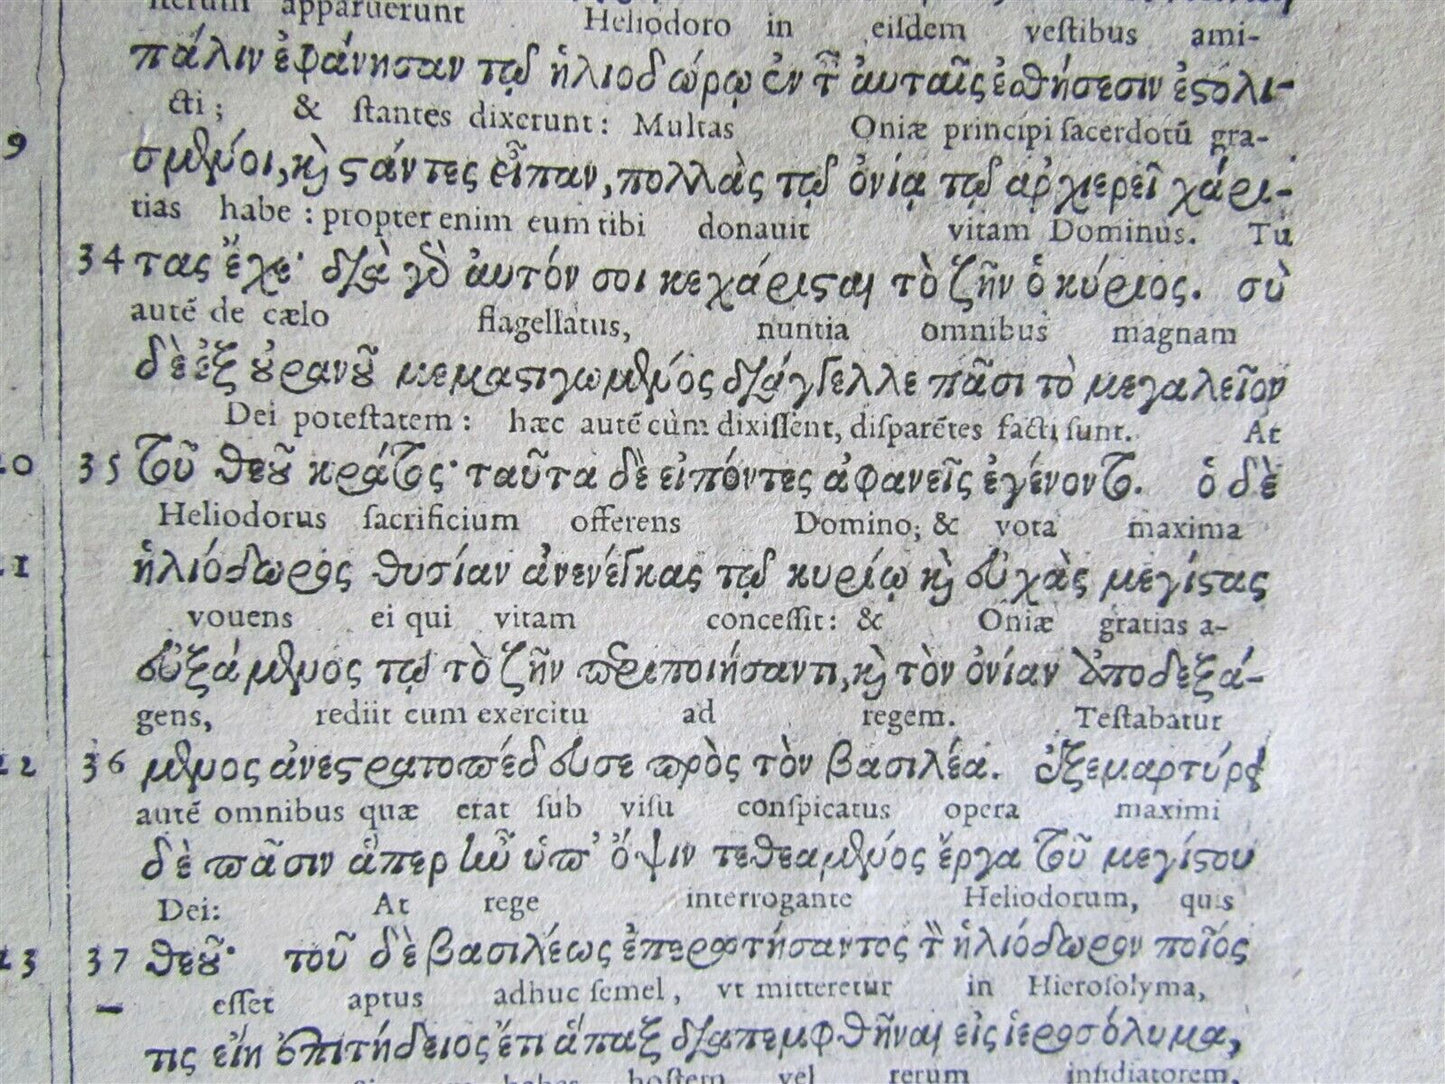 iterum apparuerunt Heliodoro in eiſdem veſtibus ami-
πάλιν ἐφάνησαν τῷ ἡλιοδώρῳ ἐν τ͂ αὐταῖς ἐσθήσεσιν ἐϛολι-
cti ; & ſtantes dixerunt : Multas Oniæ principi ſacerdotũ gra-
9 σμένοι, καὶ ϛάντες εἶπαν, πολλὰς τῷ ὀνίᾳ τῷ ἀρχιερεῖ χάρι-
tias habe : propter enim eum tibi donauit vitam Dominus. Tu
34 τας ἔχε· διὰ γὰρ αὐτόν σοι κεχάριϛαι τὸ ζῆν ὁ κύριος. σὺ
autẽ de cælo flagellatus, nuntia omnibus magnam
δὲ ἐξ οὐρανοῦ μεμαϛιγωμένος διάγγελλε πᾶσι τὸ μεγαλεῖον
Dei poteſtatem : hæc autẽ cùm dixiſſent, diſparẽtes facti ſunt. At
20 35 τοῦ θεοῦ κράτος· ταῦτα δὲ εἰπόντες ἀφανεῖς ἐγένοντο. ὁ δὲ
Heliodorus ſacrificium offerens Domino, & vota maxima
21 ἡλιόδωρος θυσίαν ἀνενέγκας τῷ κυρίῳ καὶ εὐχὰς μεγίϛας
vouens ei qui vitam conceſſit : & Oniæ gratias a-
εὐξάμενος τῷ τὸ ζῆν περιποιήσαντι, καὶ τὸν ὀνίαν ἀποδεξά-
gens, rediit cum exercitu ad regem. Teſtabatur
22 36 μενος ἀνεϛρατοπέδευσε πρὸς τὸν βασιλέα. ἐξεμαρτύρει
autẽ omnibus quæ erat ſub viſu conſpicatus opera maximi
δὲ πᾶσιν ἅπερ ἦν ὑπ' ὄψιν τεθεαμένος ἔργα τοῦ μεγίϛου
Dei: At rege interrogante Heliodorum, quis
23 37 θεοῦ· τοῦ δὲ βασιλέως ἐπερωτήσαντος τὸν ἡλιόδωρον ποῖός
eſſet aptus adhuc ſemel, vt mitteretur in Hieroſolyma,
τις εἴη ἐπιτήδειος ἔτι ἅπαξ διαπεμφθῆναι εἰς ἱεροσόλυμα,
habes hoſtem vel rerum inſidiatorem,